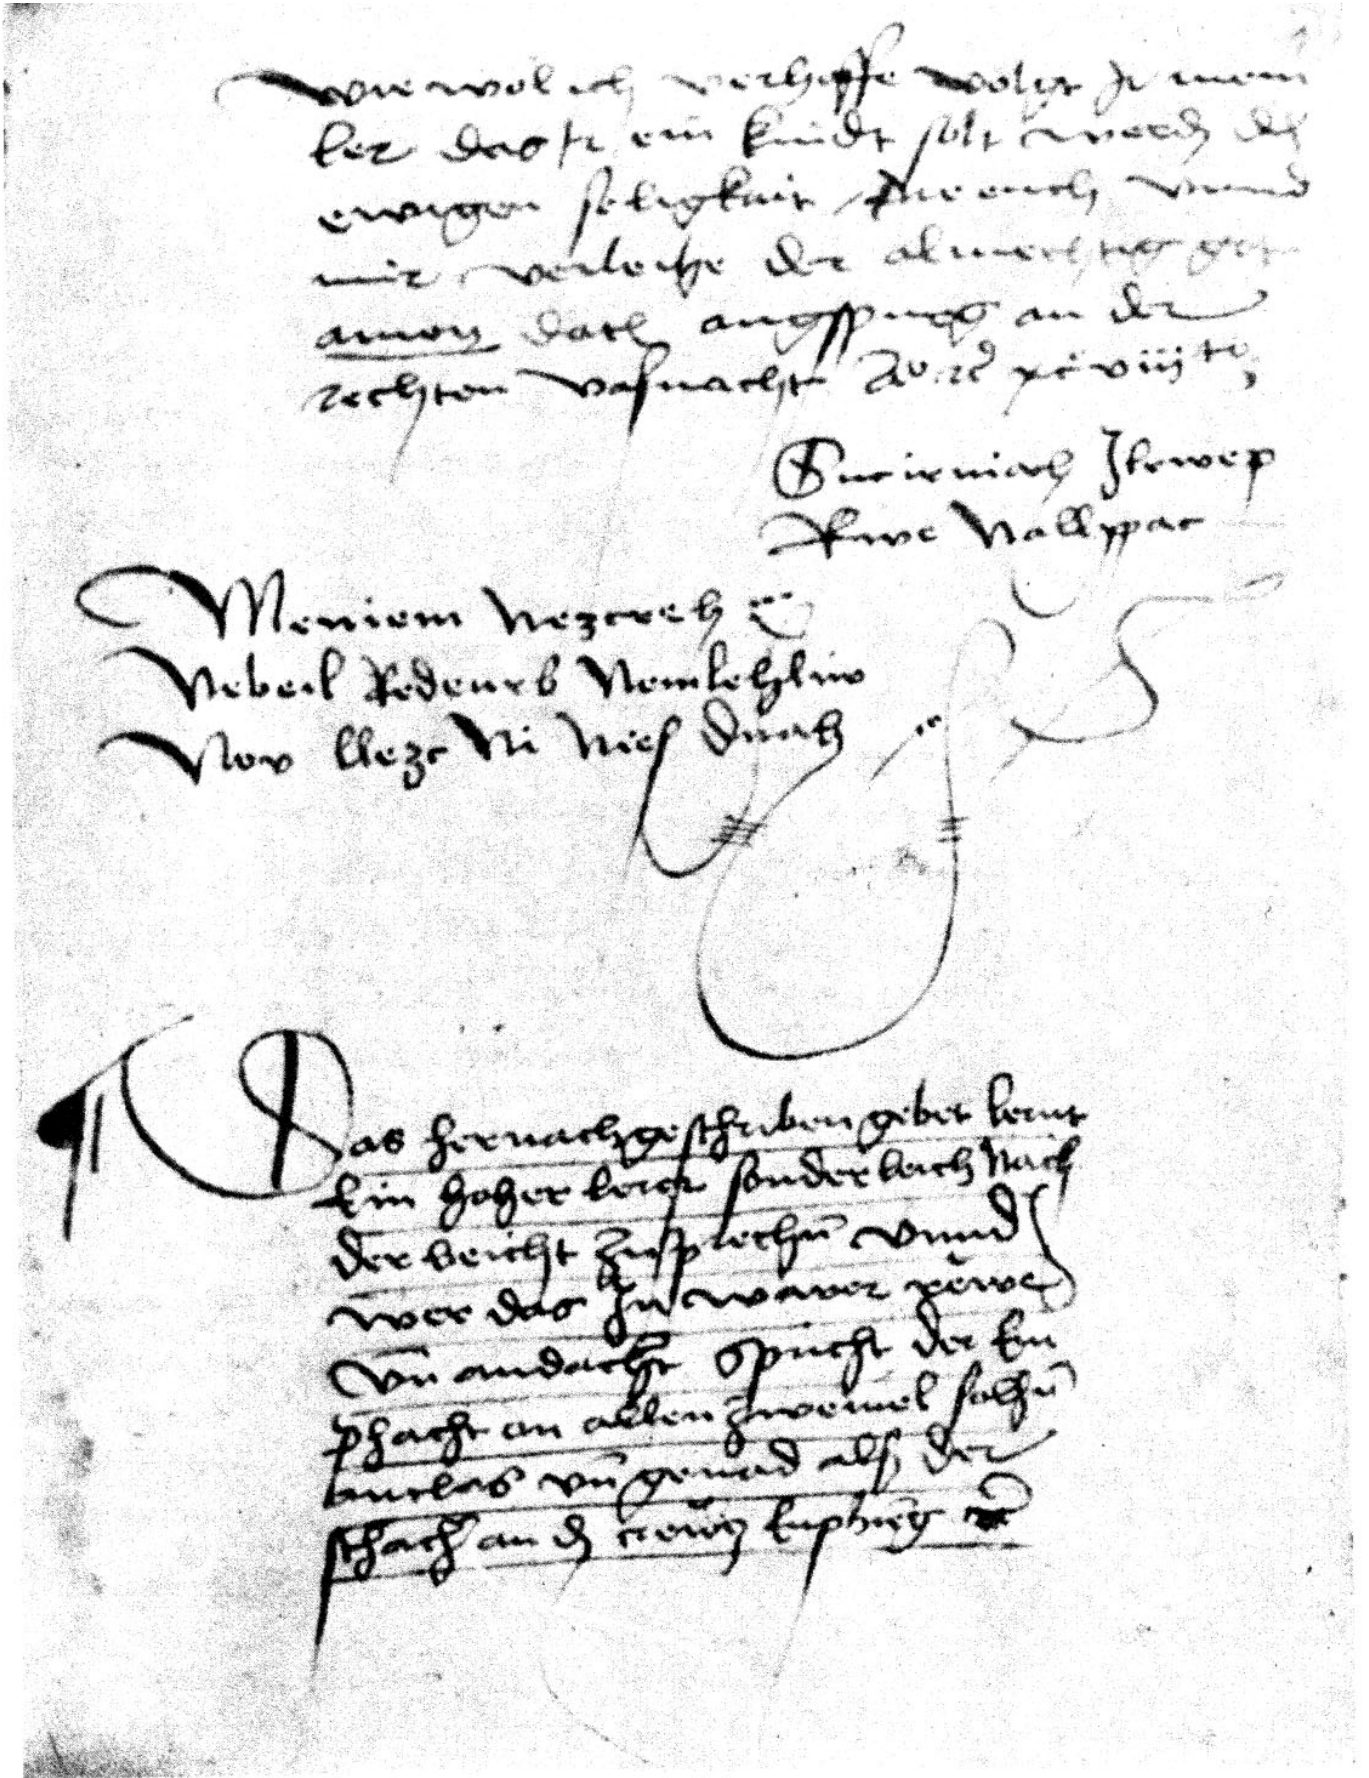 wie wol ich verhoffe volgt Ir mein
ler das Ir ein kindt solt werden der
ewigen seligkait die euch vnnd
mir verleihe der almechtig got
amen dat augspurg an der
rechten vasnacht Aō rc xcviijto
Sucirniach Jlrwep
Rwe Nallppac
Meniem Nezcreh
Nebeil Redeurb Nemlehliw
Nov llezc Ni Nies dnach
Das hernachgeschriben gebet lernt
Ein hoher lerer sonderleich Nach
der beicht zusprechn̄ vnnd
wer das In warer rewe
vn̄ andacht spricht der Em
phacht an allen zweiuel solhn̄
anclas vn̄ genad als der
schacher an dem crewcz Emphieng